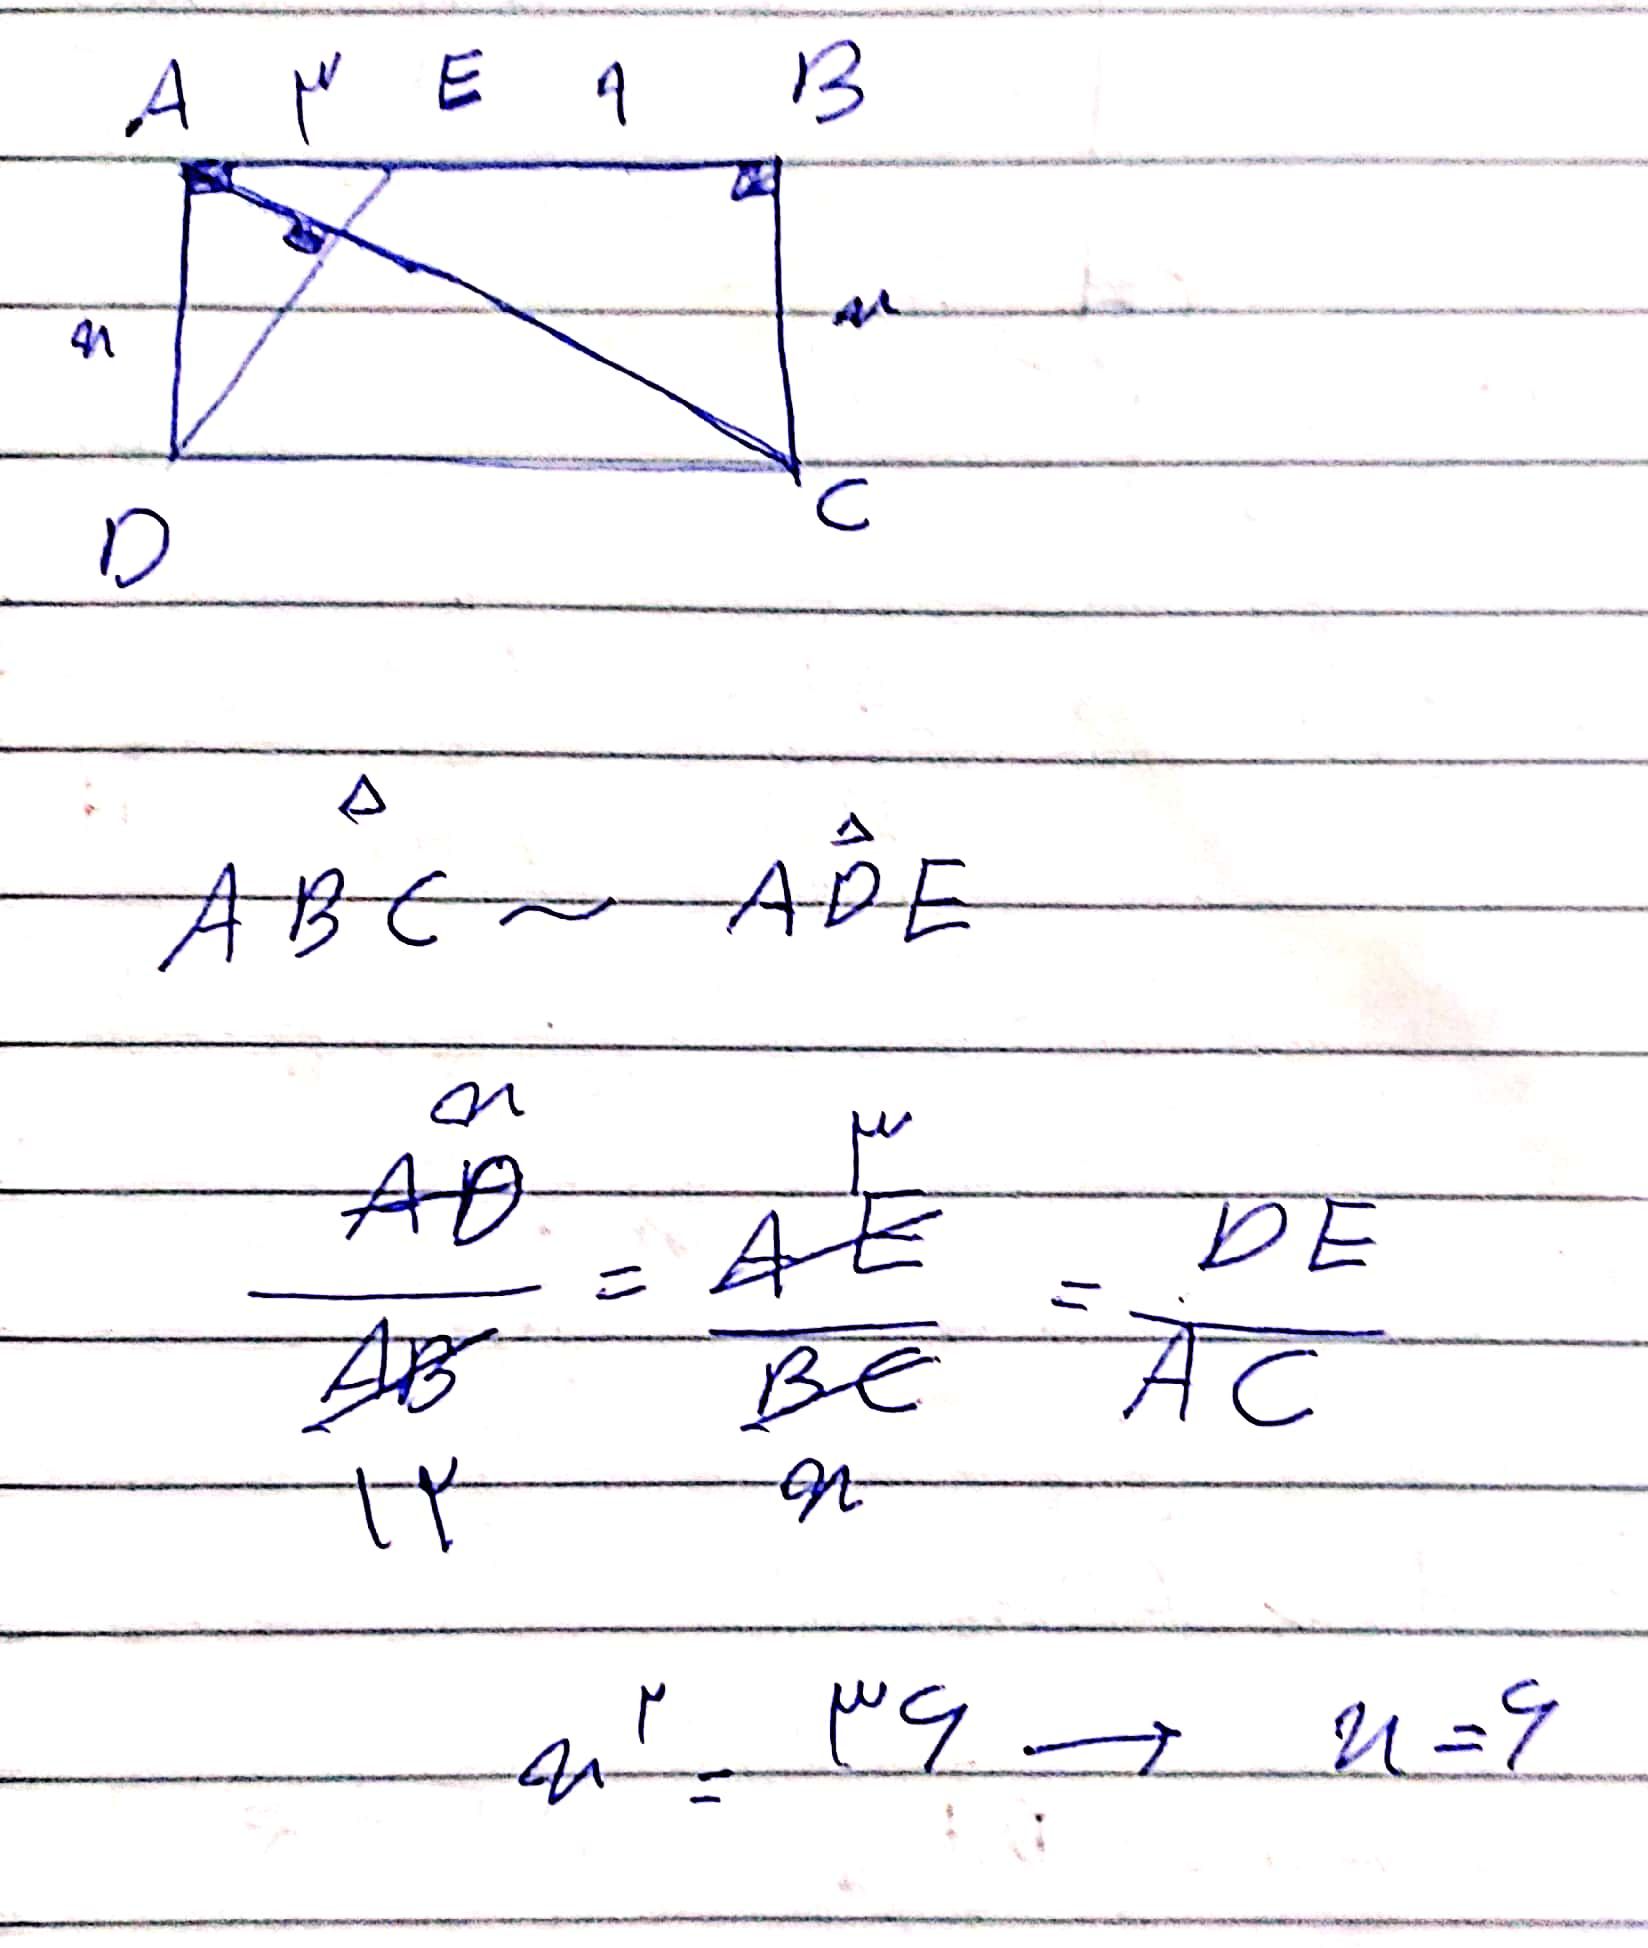 A ۳ E ۹ B
x x
D C
ABC ~ ADE
x ۳
AD/AB = AE/BC = DE/AC
۱۲ x
x^۲ = ۳۶ → x = ۶